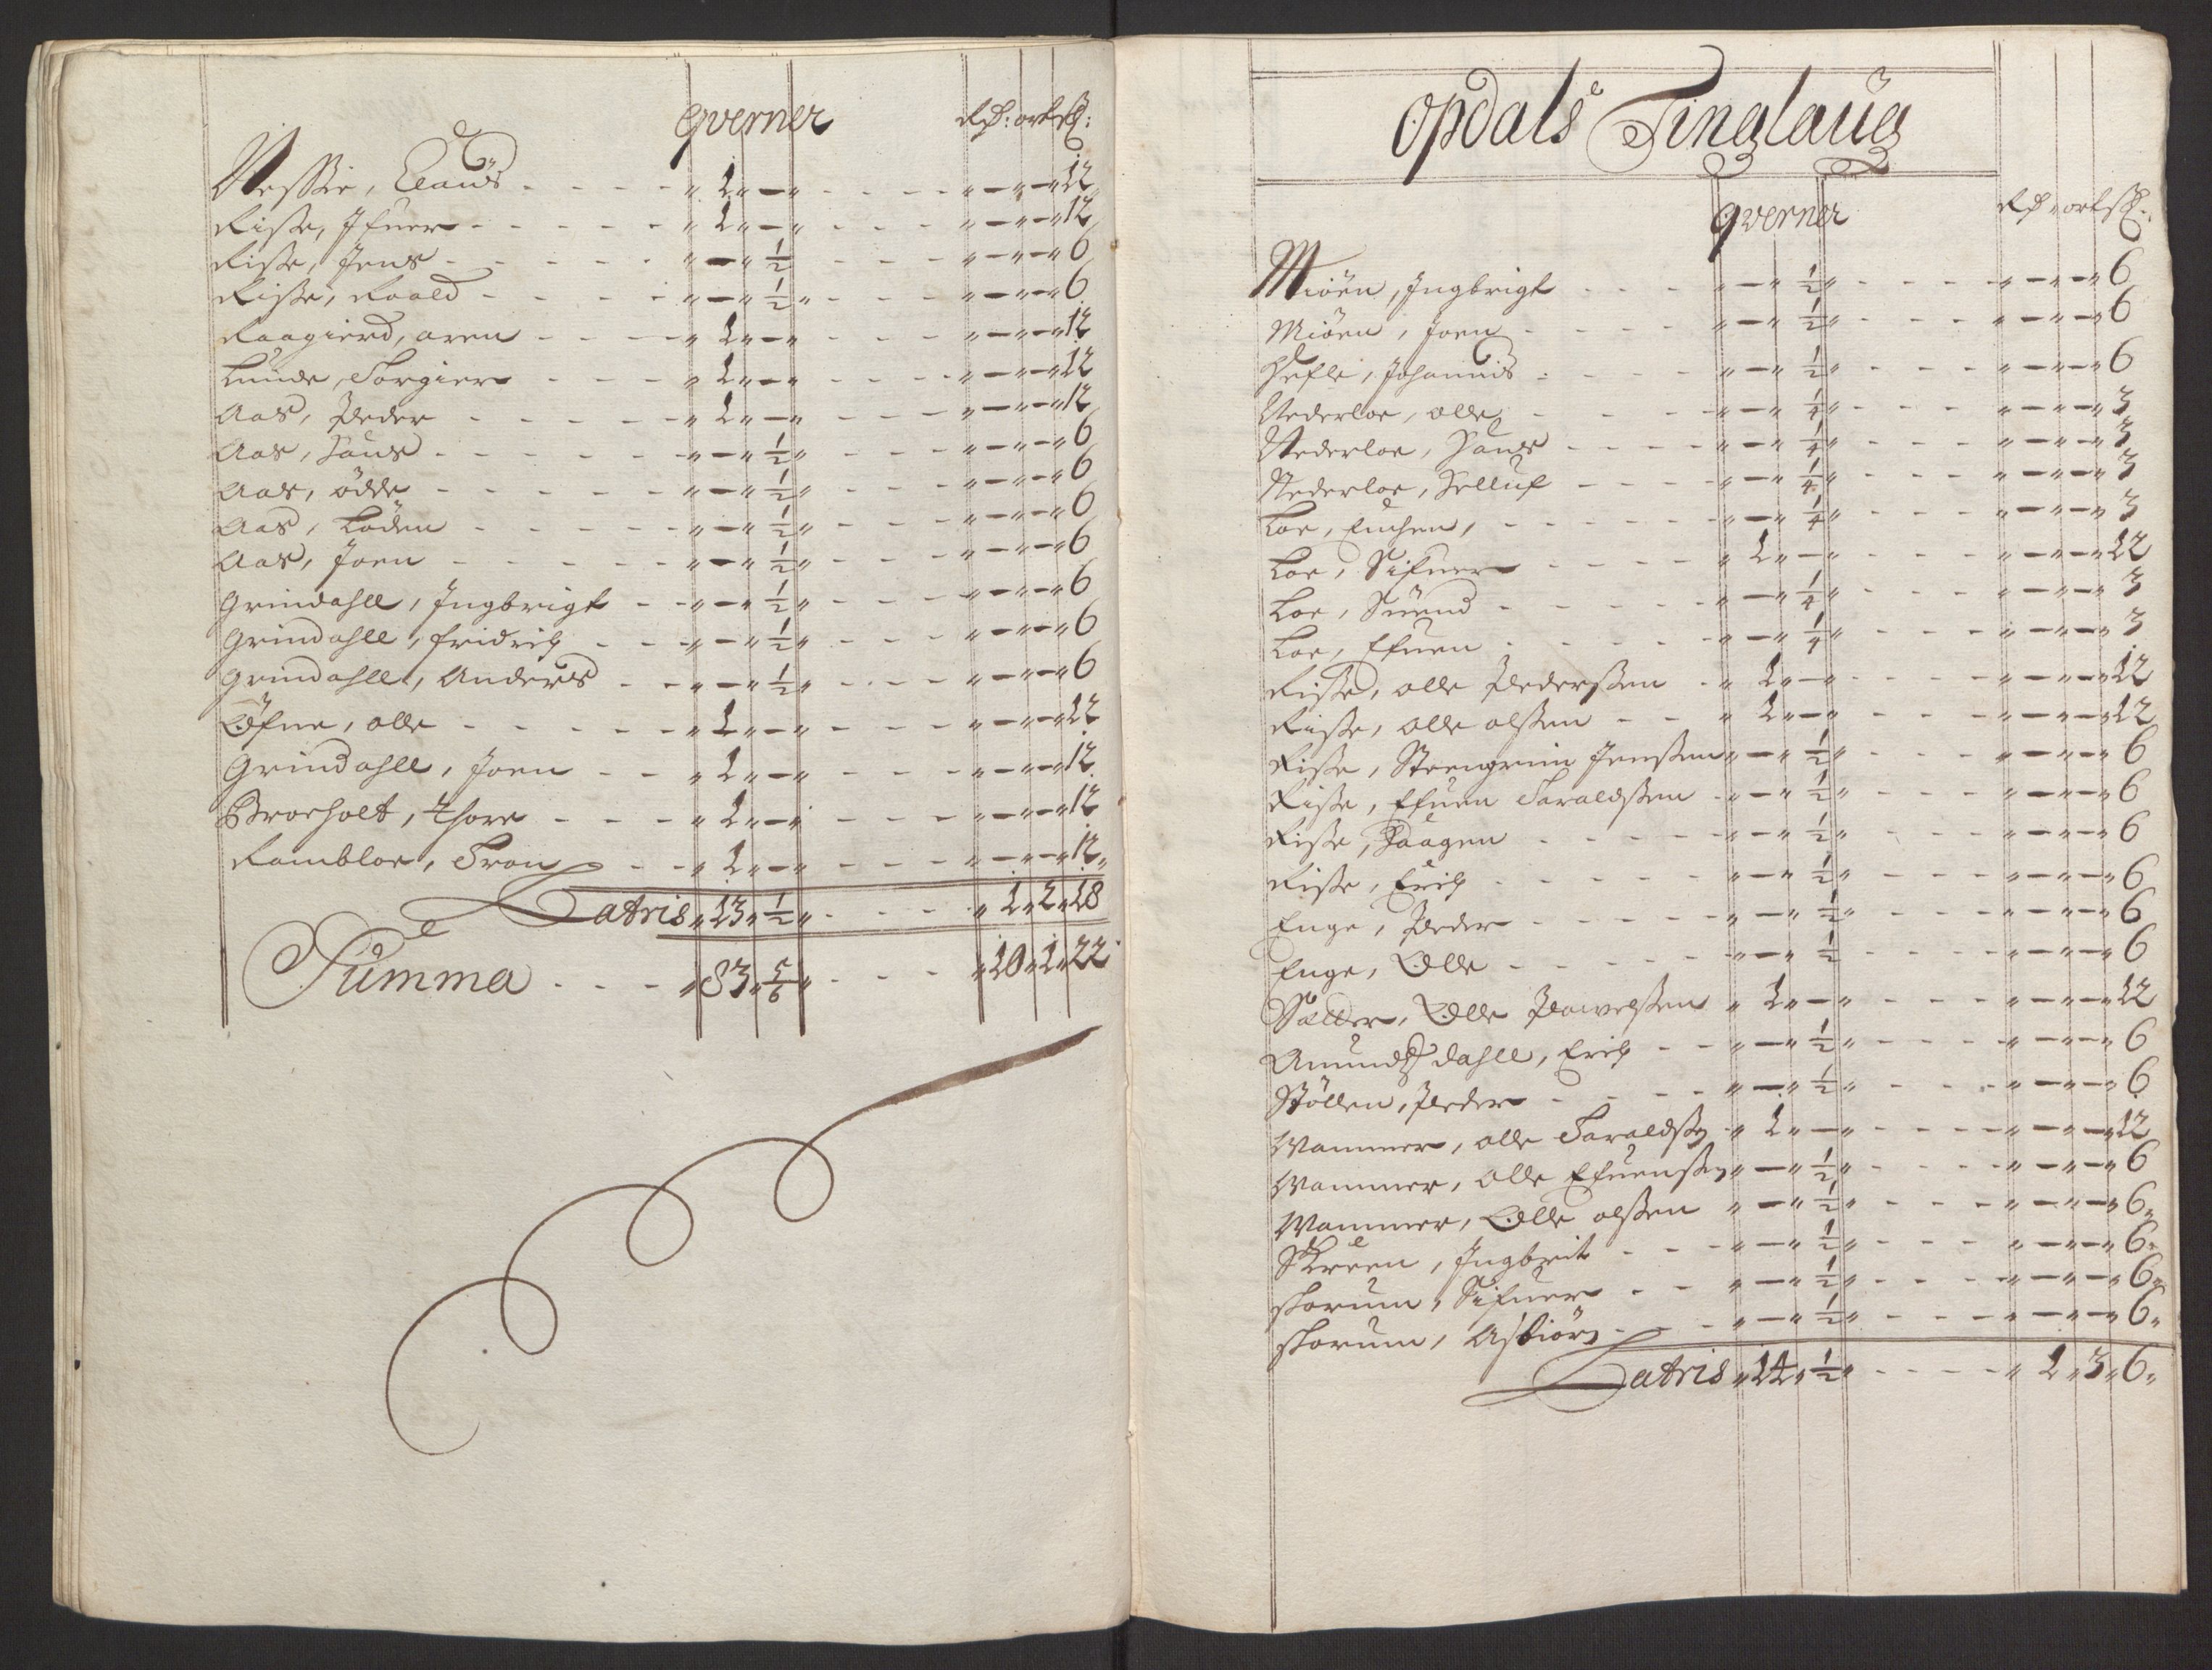 qverner Rd: ort ß:
Nesslie, Claus - - - - " 1 " — " - - - - " — " — " 12
Risse, Ifuer - - - - - " 1 " — " - - - " — " — " 12
Risse, Jens - - - - - " — " ½ - - - " — " — " 6
Risse, Roald - - - - " — " ½ " - - - - " — " — " 6
Raagierd, aren - - - - " 1 " — " - - - " — " — " 12
Lunde, Torgier - - - " 1 " — " - - - - " — " — " 12
Aas, Peder - - - - - " 1 " — " - - - " — " — " 12
Aas, Hans - - - - - - " — " ½ " - - - " — " — " 6
Aas, odde - - - - - " — " ½ " - - - " — " — " 6
Aas, Loden - - - - - " — " ½ " - - - " — " — " 6
Aas, Joen - - - - - " — " ½ " - - - " — " — " 6
Grindahll, Ingbrigt - - " — " ½ " - - - " — " — " 6
Grindahll, fridrich - - " — " ½ " - - - " — " — " 6
Grindahll, Anders - - " — " ½ " - - - - " — " — " 6
Øfne, olle - - - - - " 1 " — " - - - " — " — " 12
Grindahll, Joen - - " 1 " — " - - - " — " — " 12
Broeholt, thore - - - " 1 " — " - - - " — " — " 12
Rambloe, Tron - - " 1 " — " - - - " — " — " 12 "
Latris " 13 " ½ " - - - " 1 " 2 " 18
Summa - - - " 83 " 5/6 " - - - " 10 " 1 " 22
Opdals Tinglaug
qverner Rd " ort ß:
Miöen, Ingbrigt - - - " — " ½ " - - - " — " — " 6
Miöen, Joen - - - - " — " ½ " - - - " — " — " 6
Hefle, Johannis - - - - " — " ½ " - - - " — " — " 6
Nederloe, olle - - - " — " ¼ " - - - " — " — " 3
Nederloe, Hans - - - - " — " ¼ " - - - - " — " — " 3
Nederloe, Helluf - - - " — " ¼ " - - - - " — " — " 3
Loe, Enchen, - - - - - " — " ¼ " - - - " — " — " 3
Loe, Sifuer - - - - " 1 " — " - - - " — " — " 12
Loe, Suend - - - - - " — " ¼ " - - - " — " — " 3
Loe, Efuen - - - - - " — " ¼ " - - - " — " — " 3
Risse, olle Pedersen - " 1 " — " - - - - " — " — " 12
Risse, olle olsen - - " 1 " — " - - - " — " — " 12
Risse, Steengrim Jensen " — " ½ " - - - " — " — " 6
Risse, Efuen Taraldsen " — " ½ " - - - " — " — " 6
Risse, Haagen - - - - " — " ½ " - - - " — " — " 6
Risse, Erich - - - - - " — " ½ " - - - " — " — " 6
Enge, Peder - - - - - " — " ½ " - - - - " — " — " 6
Enge, Olle - - - - - " — " ½ - - - - " — " — " 6
Sætter, Olle Powelsen " 1 " — " - - - - " — " — " 12
Amundsdahll, Erich - - " — " ½ " - - - - " — " — " 6
Stöllen, Peder - - - - " — " ½ " - - - " — " — " 6
Wammer, olle Taraldsen " 1 " — " - - - - " — " — " 12
Wammer, olle Efuensen " — " ½ " - - - - " — " — " 6
Wammer, Olle olsen " — " ½ " - - - - " — " — " 6 "
Skreen, Ingbrit - - - " — " ½ " - - - " — " — " 6 "
skorum, Sifuer - - " — " ½ " - - - - " — " — " 6 "
skorum, Asbiörn - - - " — " ½ " - - - " — " — " 6 "
Latris " 14 " ½ " - - - - " 1 " 3 " 6 "